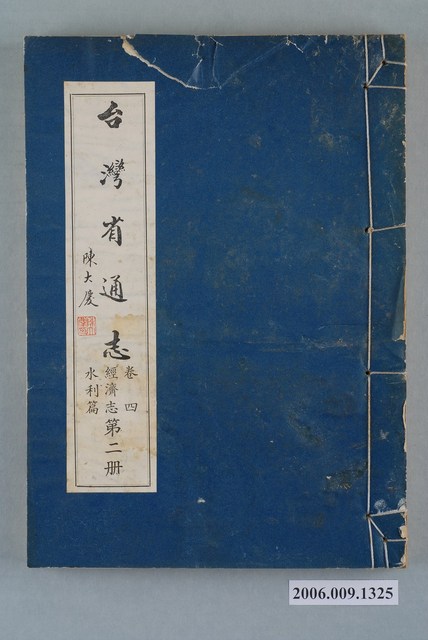 台灣省通志
陳大慶
卷四
經濟志
水利篇
第二册
2006.009.1325